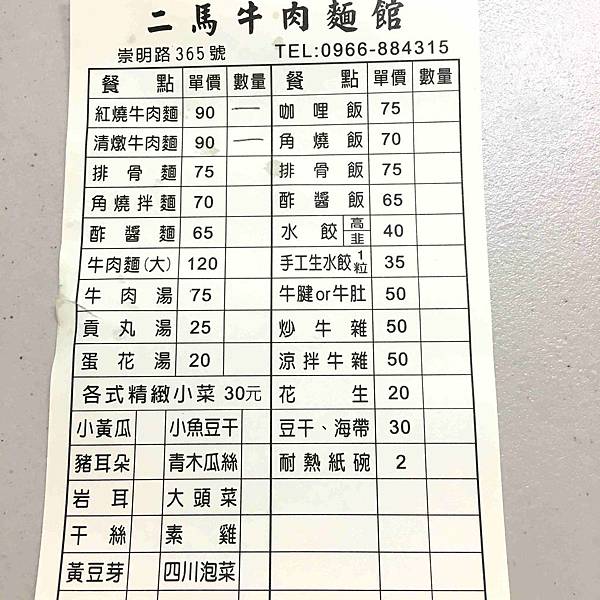 二馬牛肉麵館
崇明路365號 TEL:0966-884315
餐點 單價 數量 餐點 單價 數量
紅燒牛肉麵 90 一 咖哩飯 75
清燉牛肉麵 90 一 角燒飯 70
排骨麵 75 排骨飯 75
角燒拌麵 70 酢醬飯 65
酢醬麵 65 水餃 高 韭 40
牛肉麵(大) 120 手工生水餃1粒 35
牛肉湯 75 牛腱or牛肚 50
貢丸湯 25 炒牛雜 50
蛋花湯 20 涼拌牛雜 50
各式精緻小菜 30元 花生 20
小黃瓜 小魚豆干 豆干、海帶 30
豬耳朵 青木瓜絲 耐熱紙碗 2
岩耳 大頭菜
干絲 素雞
黃豆芽 四川泡菜